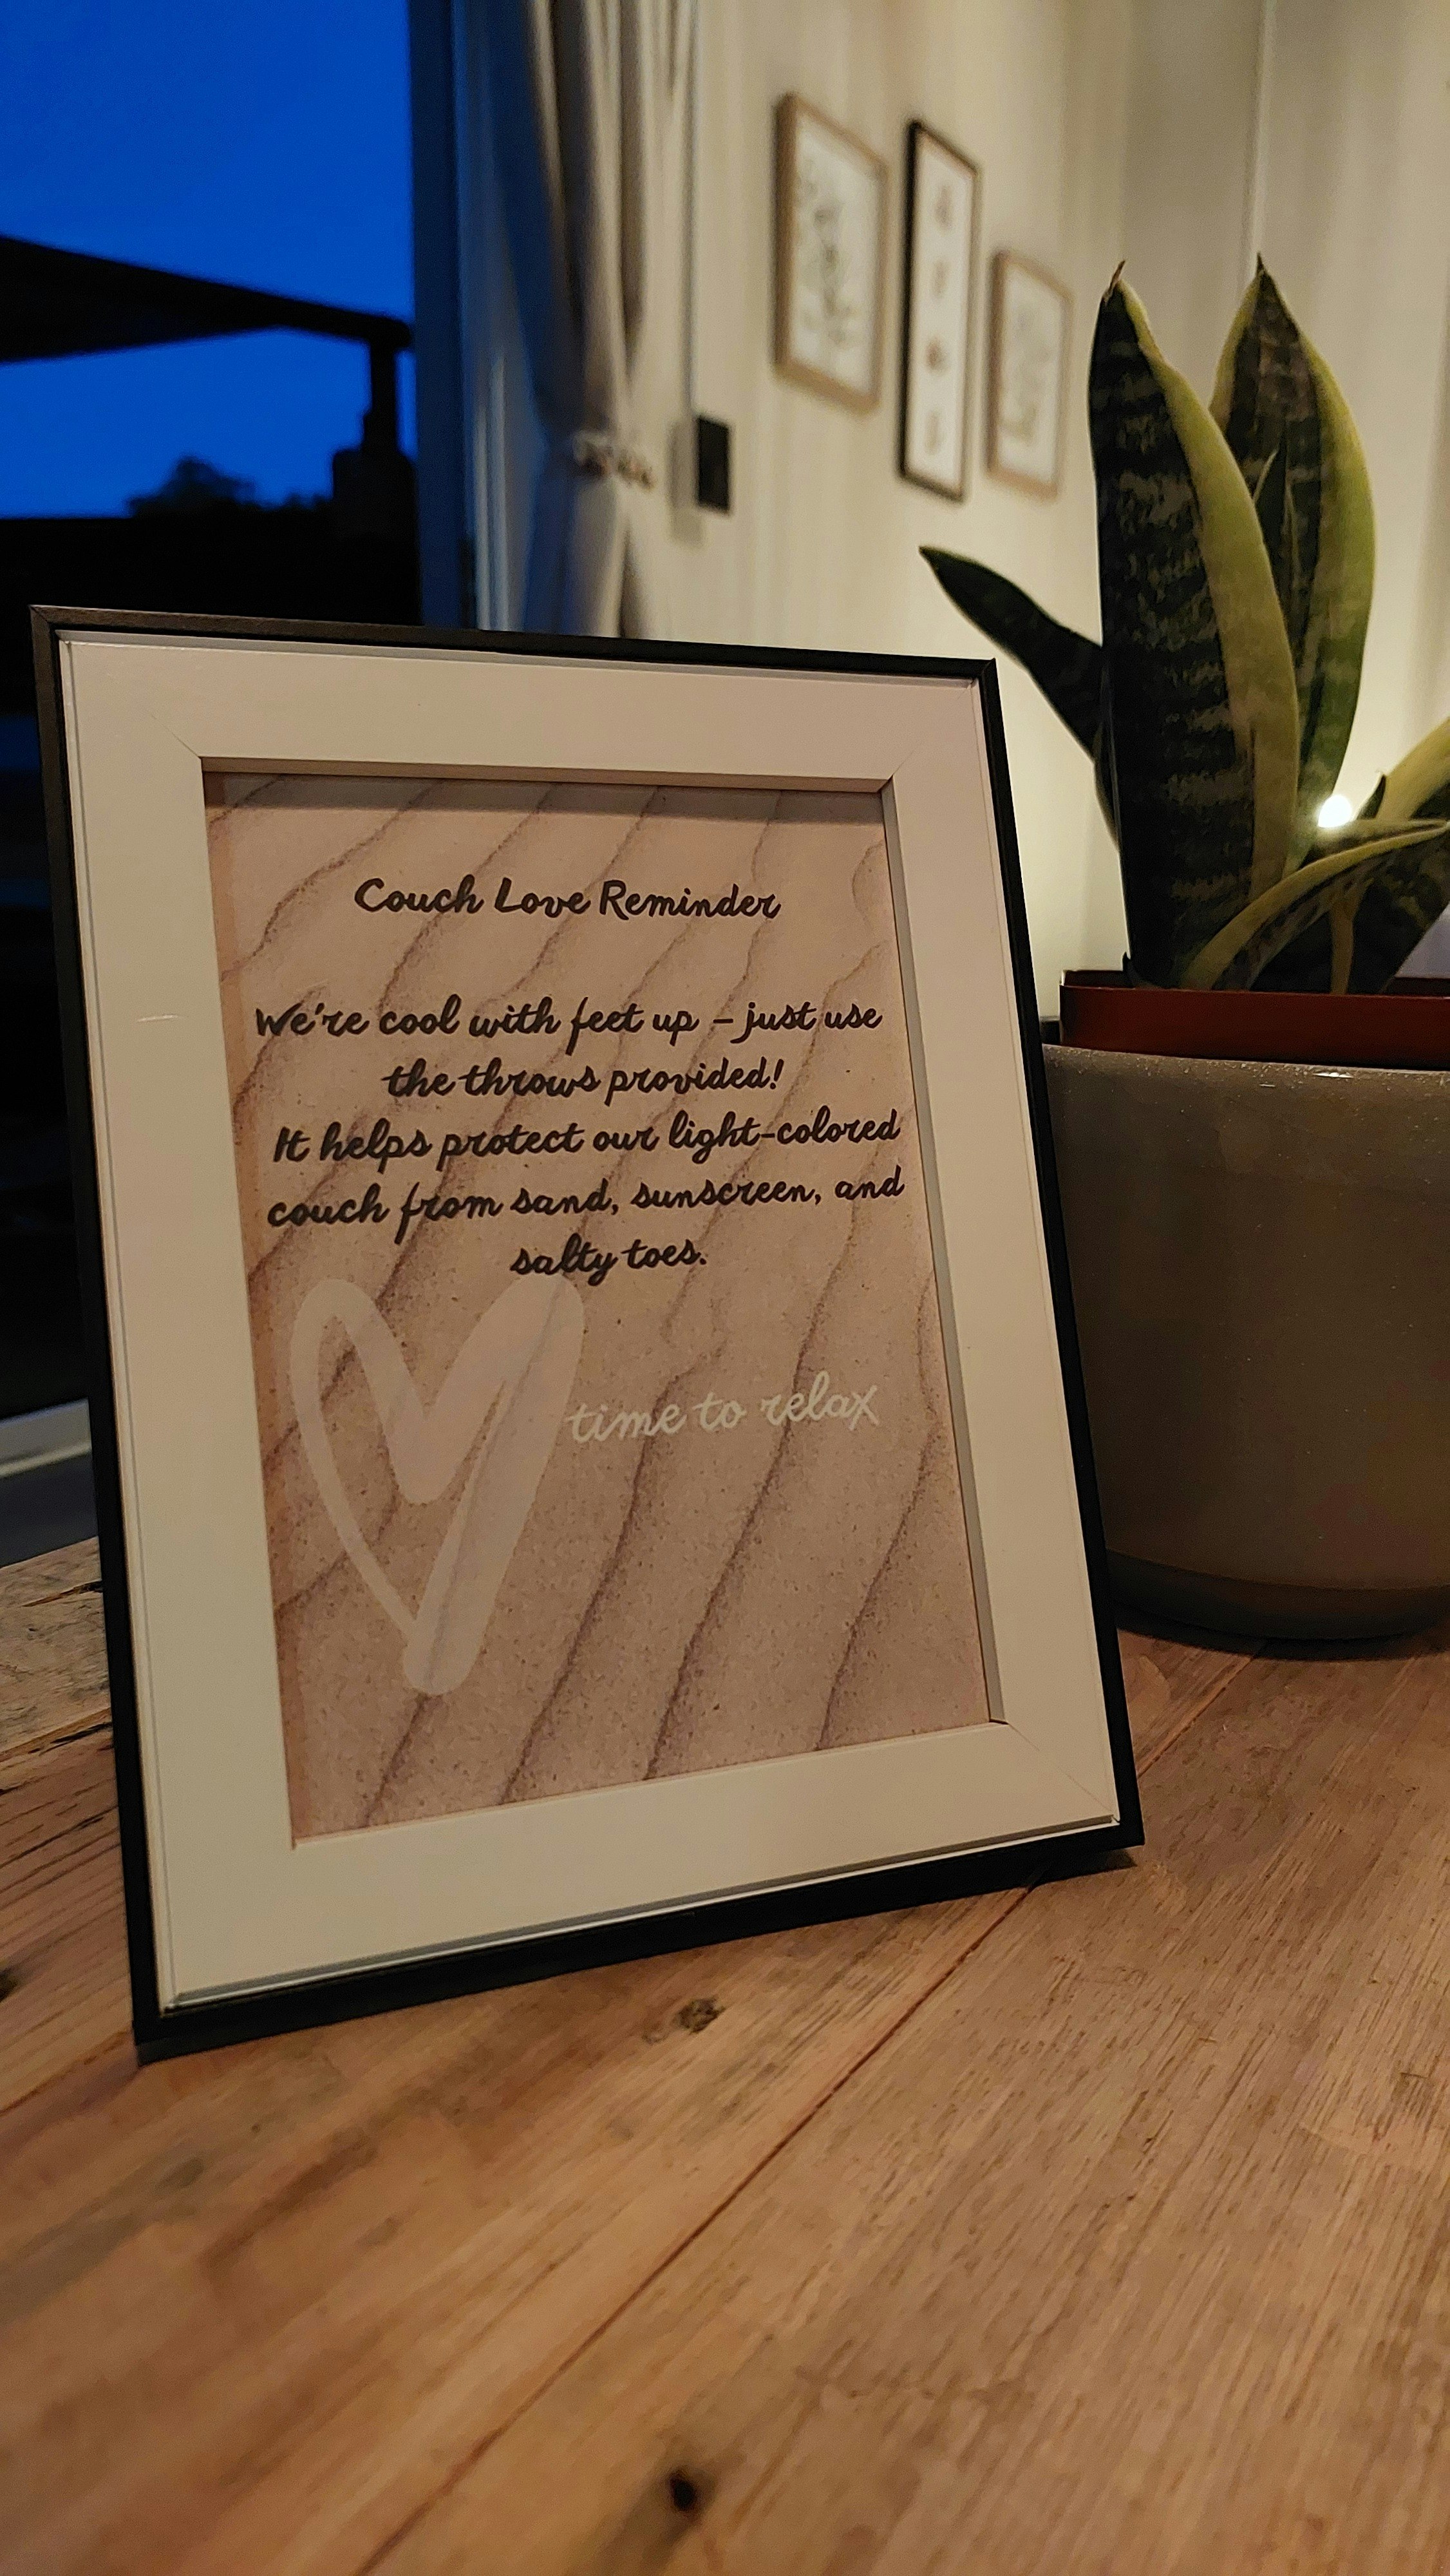 Couch Love Reminder
We're cool with feet up – just use
the throws provided!
It helps protect our light-colored
couch from sand, sunscreen, and
salty toes.
time to relax